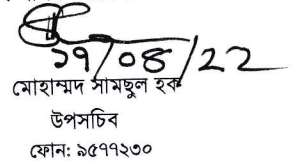 ১৭/০৪/22
মোহাম্মদ সামছুল হক
উপসচিব
ফোন: ৯৫৭৭২৩০